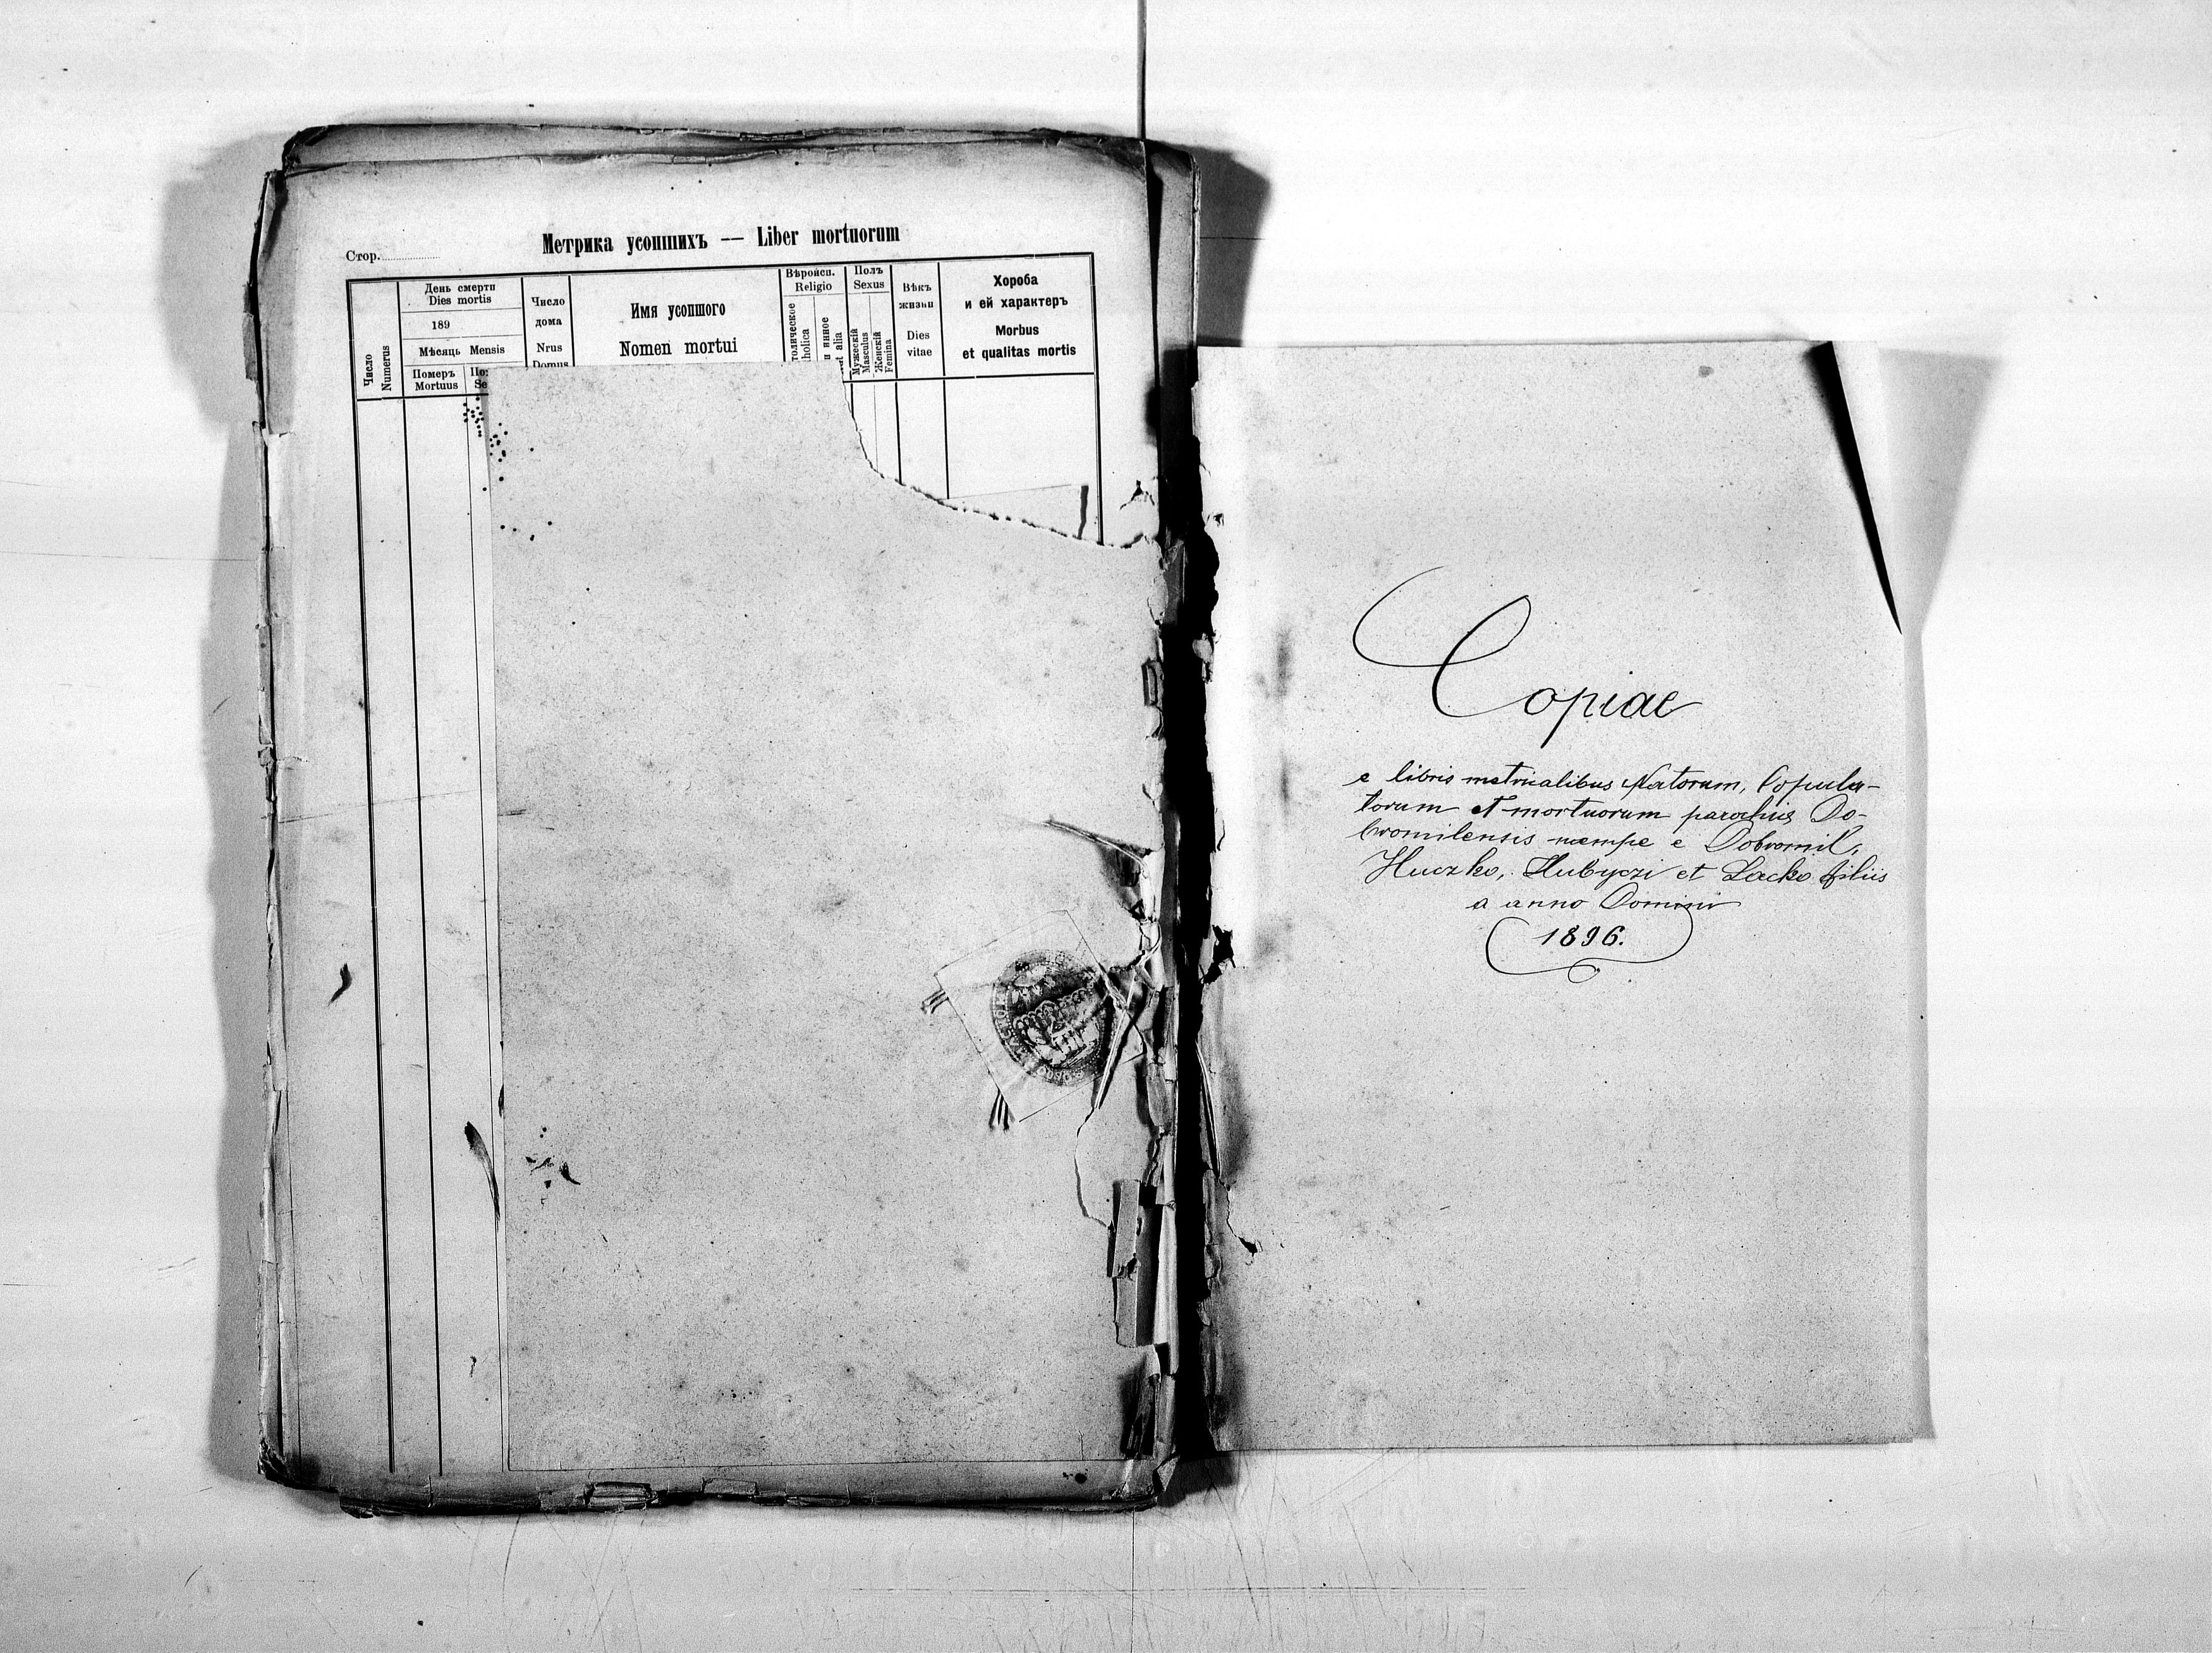 Метрика усопшихъ — Liber mortuorum
Стор.
Число
Numerus
День смерти
Dies mortis
189
Мѣсяць Mensis
Померъ
Mortuus
Число
дома
Nrus
Domus
Имя усопшого
Nomen mortui
Вѣроисп.
Religio
Полъ
Sexus
Мужескій
Masculus
Женскій
Femina
Вѣкъ
жизни
Dies
vitae
Хороба
и ей характеръ
Morbus
et qualitas mortis
Copiae
e libris metricalibus Natorum, Copula-
torum et mortuorum parochiæ Do-
bromilensis nempe e Dobromil,
Huczko, Hubyczi et Lacko filiis
a anno Domini
1896.